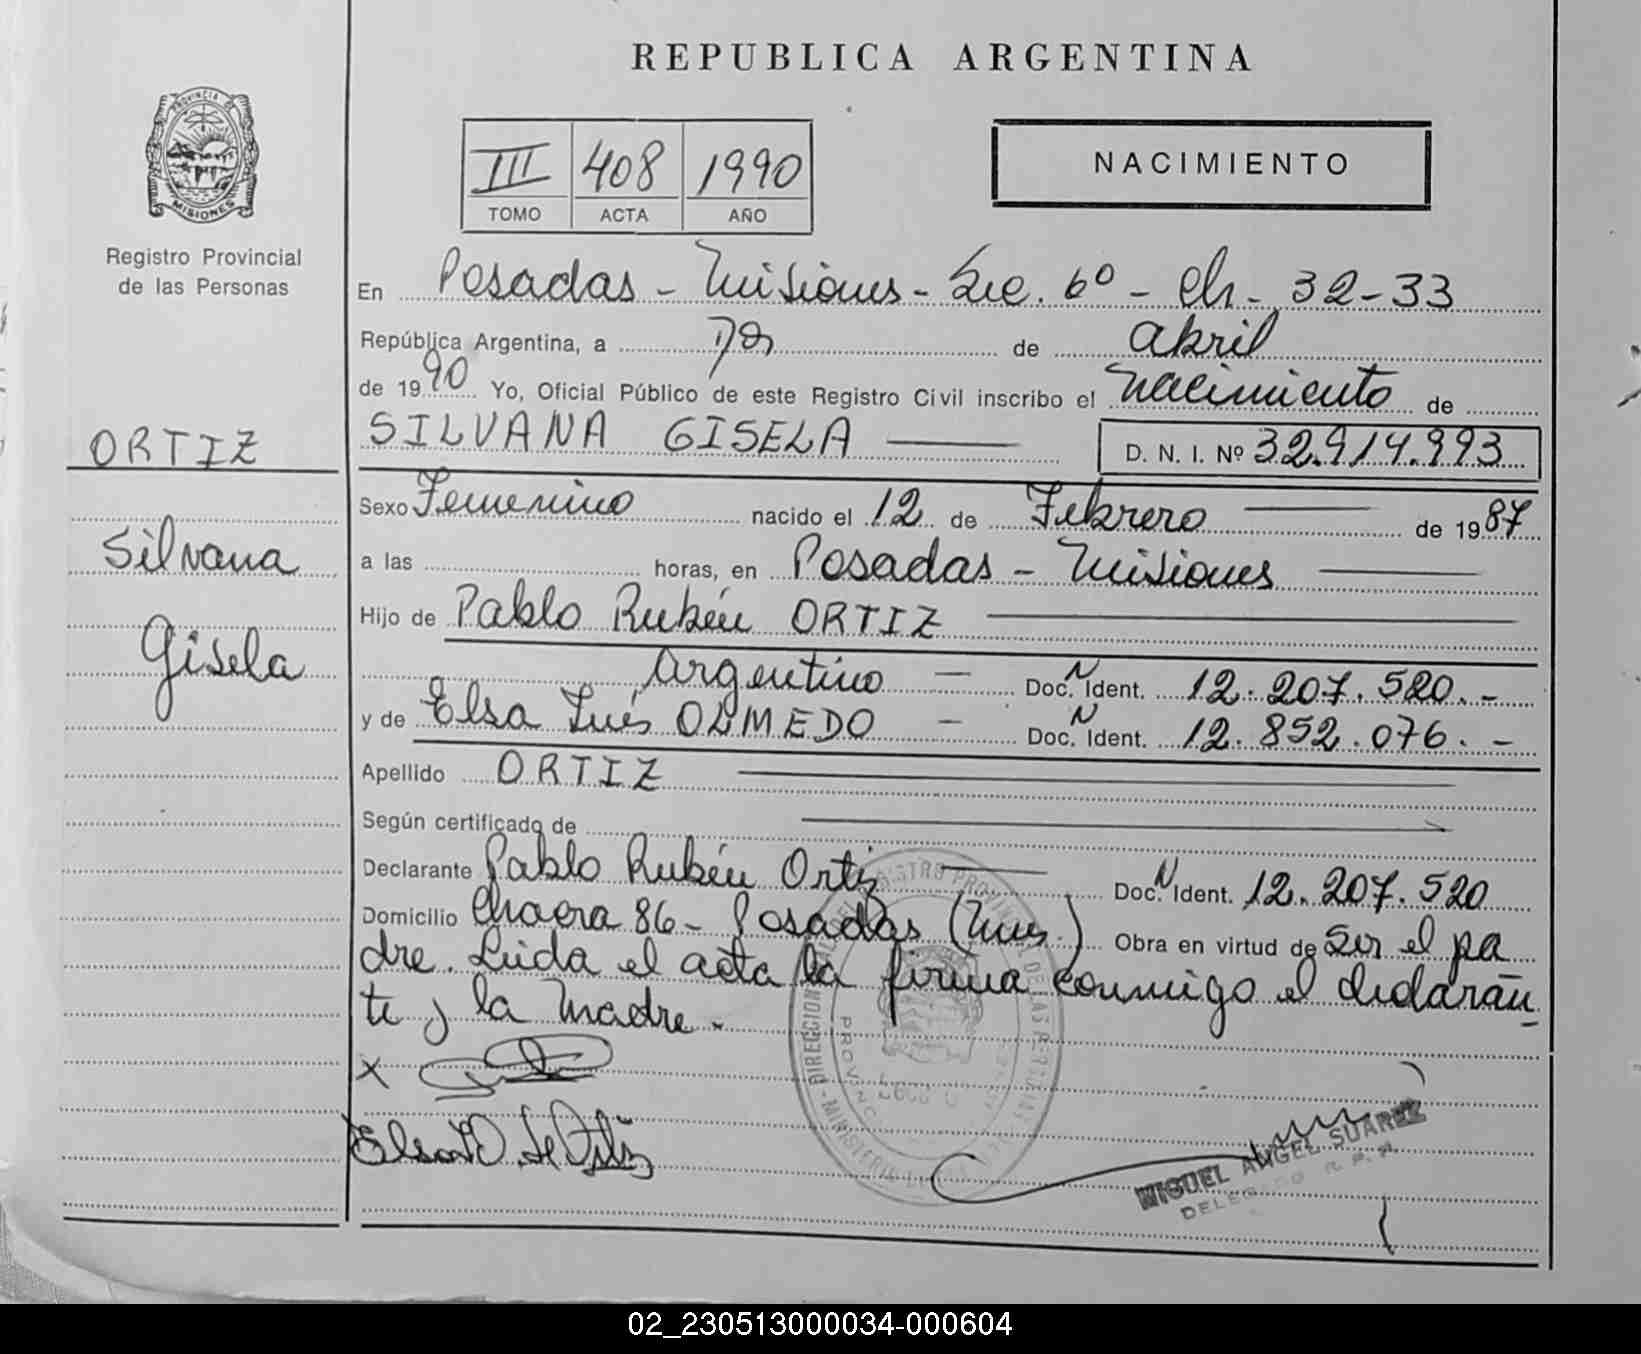 REPUBLICA ARGENTINA
PROVINCIA DE MISIONES
Registro Provincial
de las Personas
III 408 1990
TOMO ACTA AÑO
NACIMIENTO
En Posadas - Misiones - Sec. 6º - Ch - 32-33
República Argentina, a de abril
de 1990 Yo, Oficial Público de este Registro Civil inscribo el nacimiento de
SILVANA GISELA D. N. I. Nº 32.914.993
ORTIZ
Silvana
Gisela
Sexo Femenino nacido el 12 de Febrero de 1987
a las horas, en Posadas - Misiones
Hijo de Pablo Rubén ORTIZ
Argentino - Doc. N Ident. 12.207.520.-
y de Elsa Inés OLMEDO - Doc. N Ident. 12.852.076.-
Apellido ORTIZ
Según certificado de
Declarante Pablo Rubén Ortiz Doc. N Ident. 12.207.520
Domicilio Chacra 86 - Posadas (Mnes.) Obra en virtud de Ser el pa
dre. Leida el acta la firma conmigo el declaran
te y la madre.-
X
MIGUEL ANGEL SUAREZ
DELEGADO R. P. P.
02_230513000034-000604